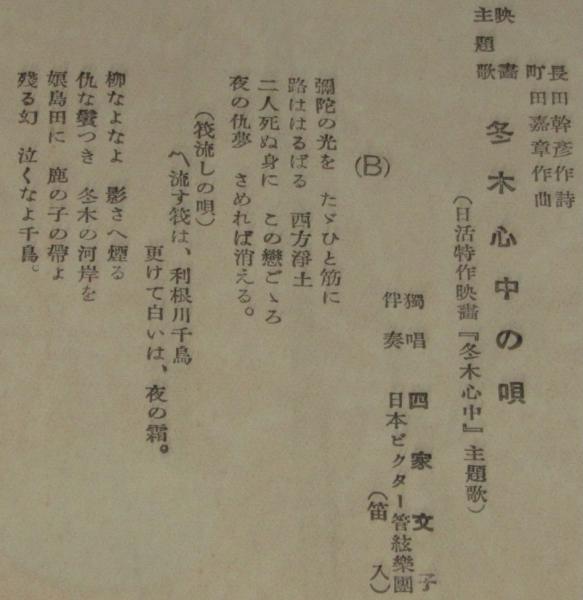 映畫
主題歌
長田幹彦作詩
町田嘉章作曲
冬木心中の唄
(日活特作映畫『冬木心中』主題歌)
獨唱 四家文子
伴奏 日本ビクター管絃樂團
(笛入)
(B)
彌陀の光を たゞひと筋に
路ははるばる 西方淨土
二人死ぬ身に この戀ごゝろ
夜の仇夢 さめれば消える。
(筏流しの唄)
〽流す筏は、利根川千鳥
更けて白いは、夜の霜。
柳なよなよ 影さへ煙る
仇な鬢つき 冬木の河岸を
娘島田に 鹿の子の帶よ
殘る幻 泣くなよ千鳥。